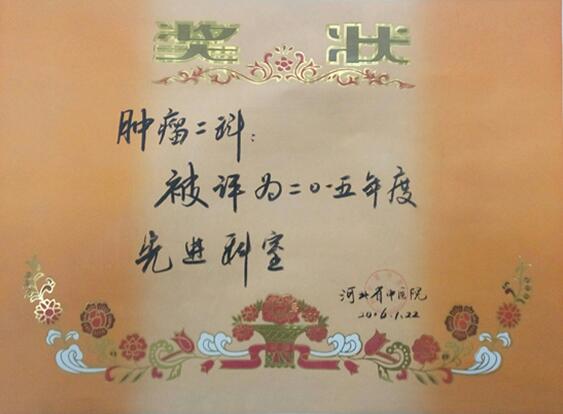 奖状
肿瘤二科：
被评为二〇一五年度
先进科室
河北省中医院
2016.1.22